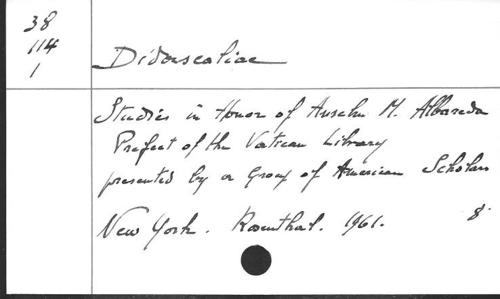 38
114
1
Didascaliae
Studies in Honor of Anselm M. Albareda
Prefect of the Vatican Library
presented by a Group of American Scholars
New York. Rosenthal. 1961. 8°